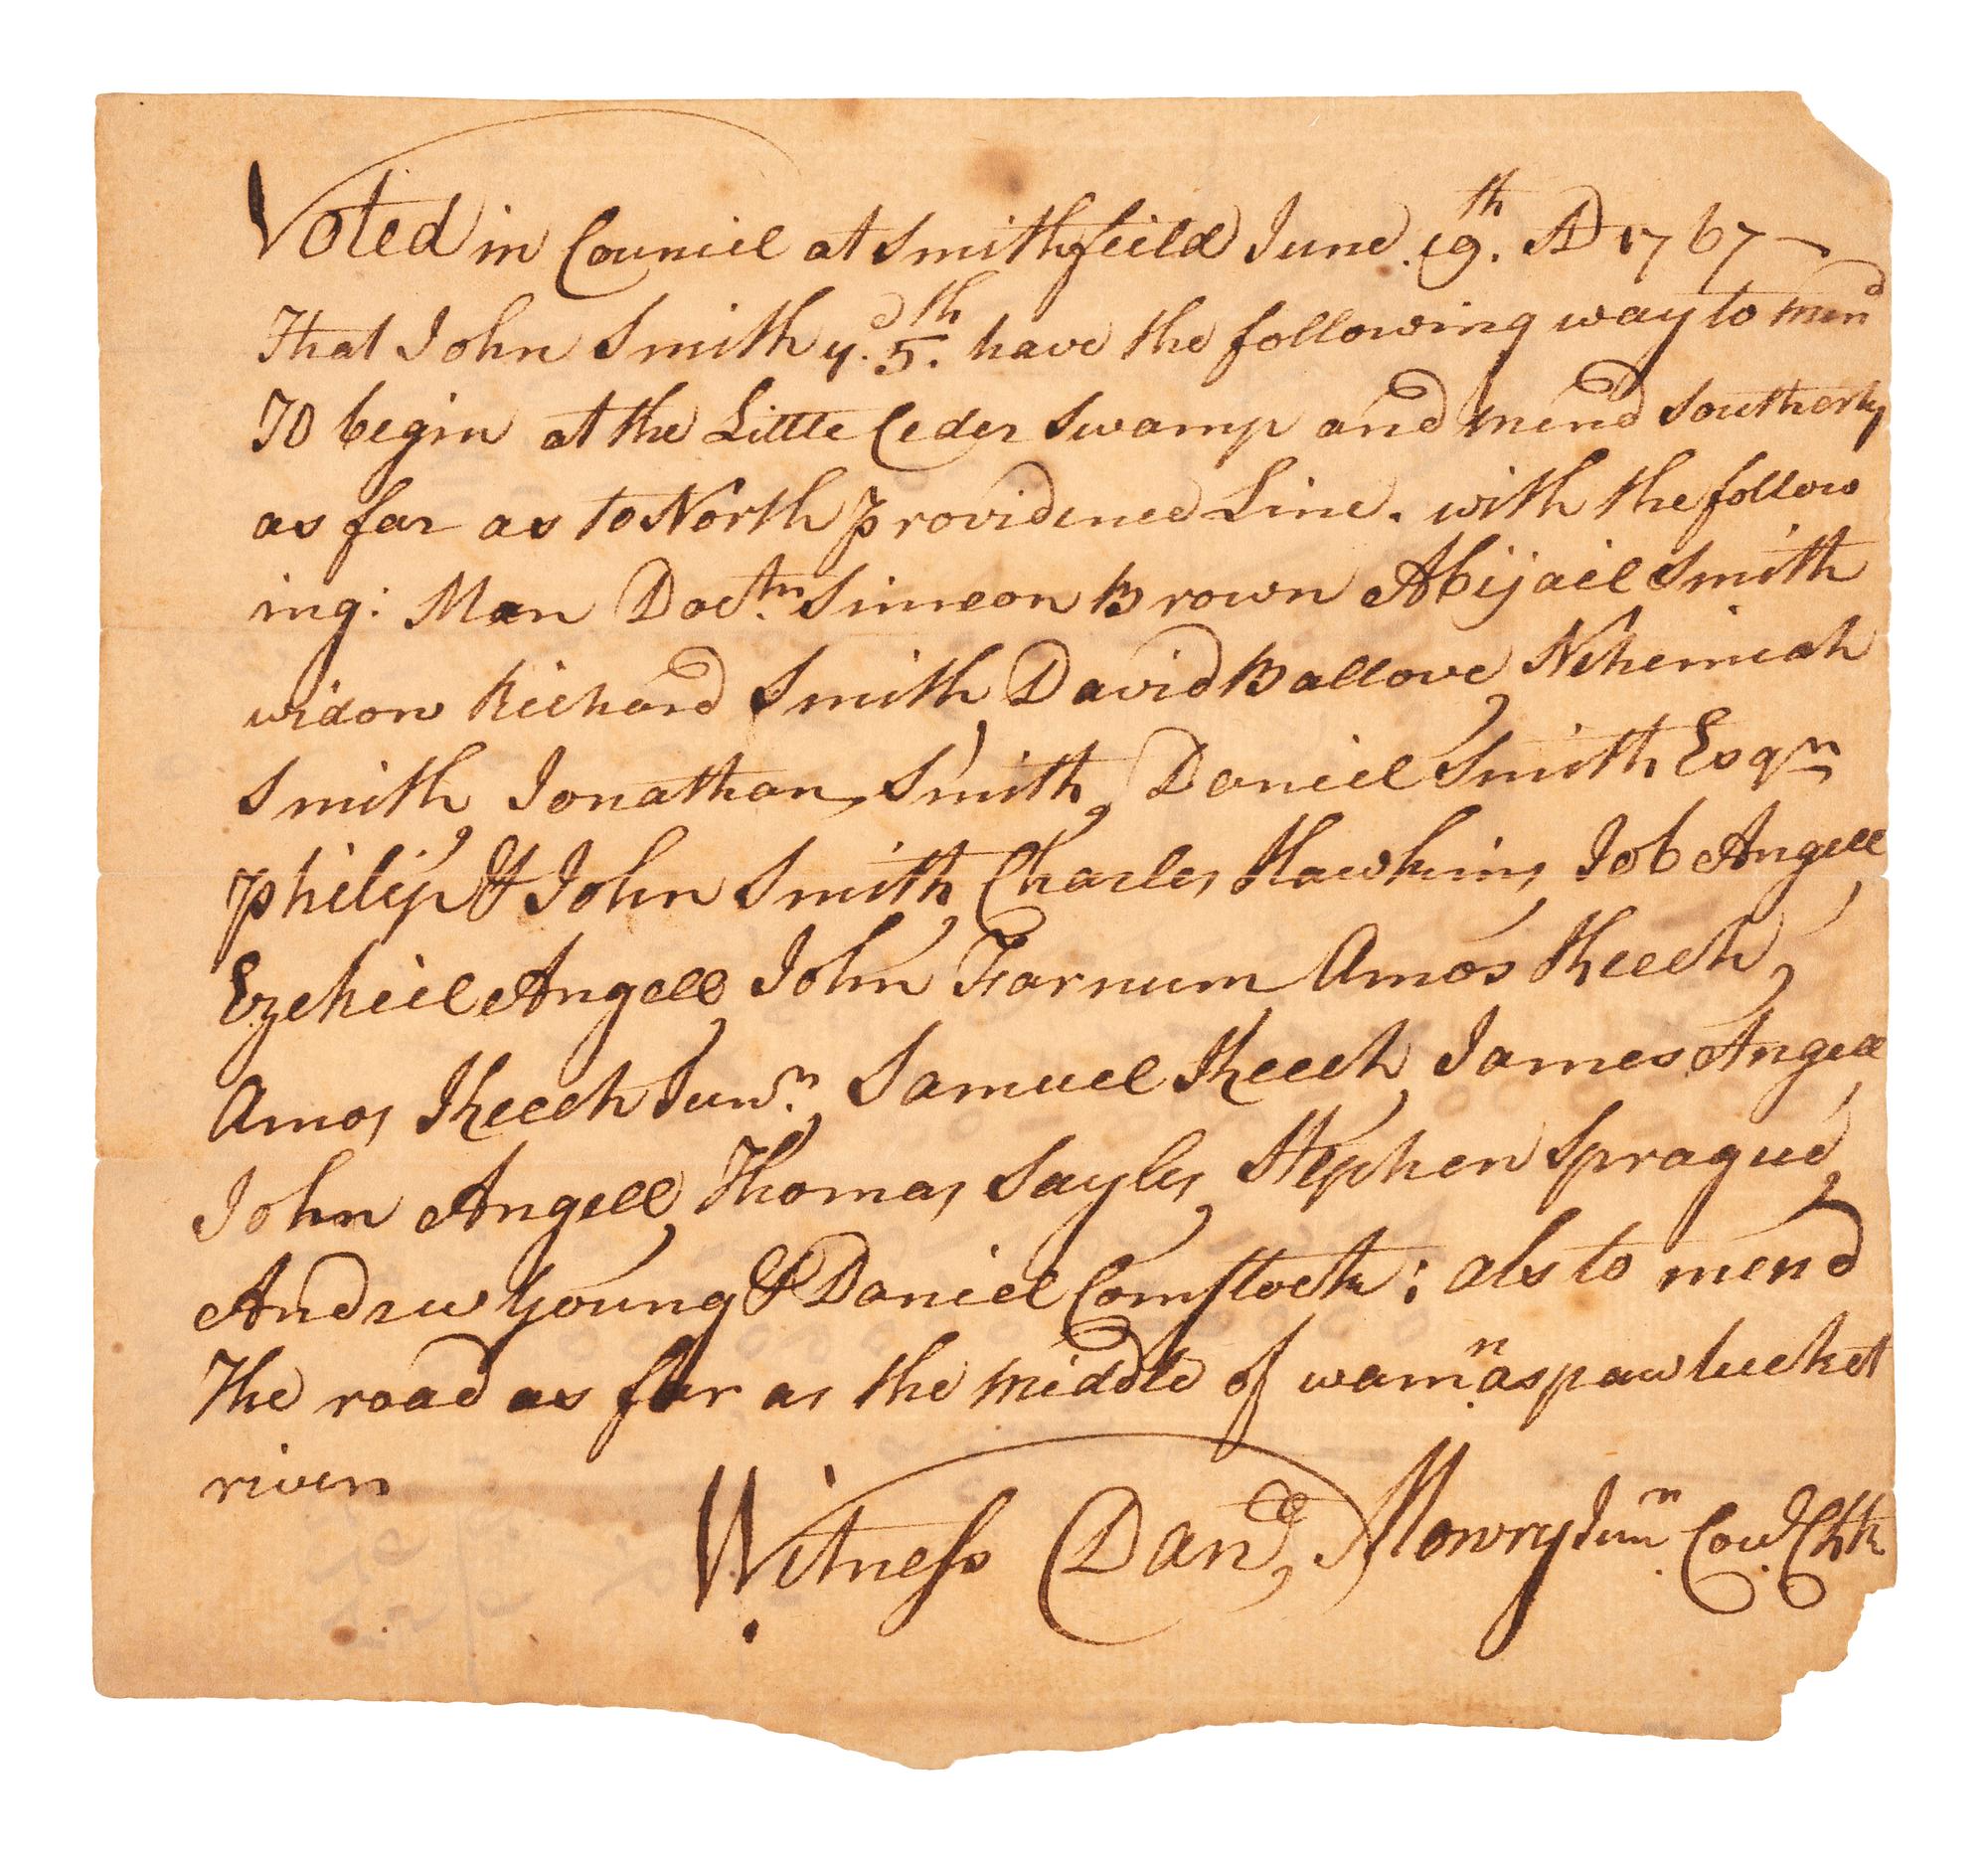 Voted in Council at Smithfield June 19th. AD 1767
That John Smith ye. 5th. have the following way to mend
To begin at the Little Ceder Swamp and mend Southerly
as far as to North Providence Line. with the follow
ing: Man Doctr. Simeon Brown Abijail Smith
widow Richard Smith, David Ballove, Nehemiah
Smith, Jonathan Smith, Daniel Smith Esqr.
Philip & John Smith, Charles Hawkins, Job Angell,
Ezekiel Angell, John Farnum Amos Keech,
Amos Keech Junr., Samuel Keech, James Angell,
John Angell, Thomas Sayles, Stephen Sprague,
Andrew Young & Daniel Comstock; als to mend
The road as far as the middle of wamnaspawtucket
river
Witness Danel, Mowry Junr. Cou. Clk